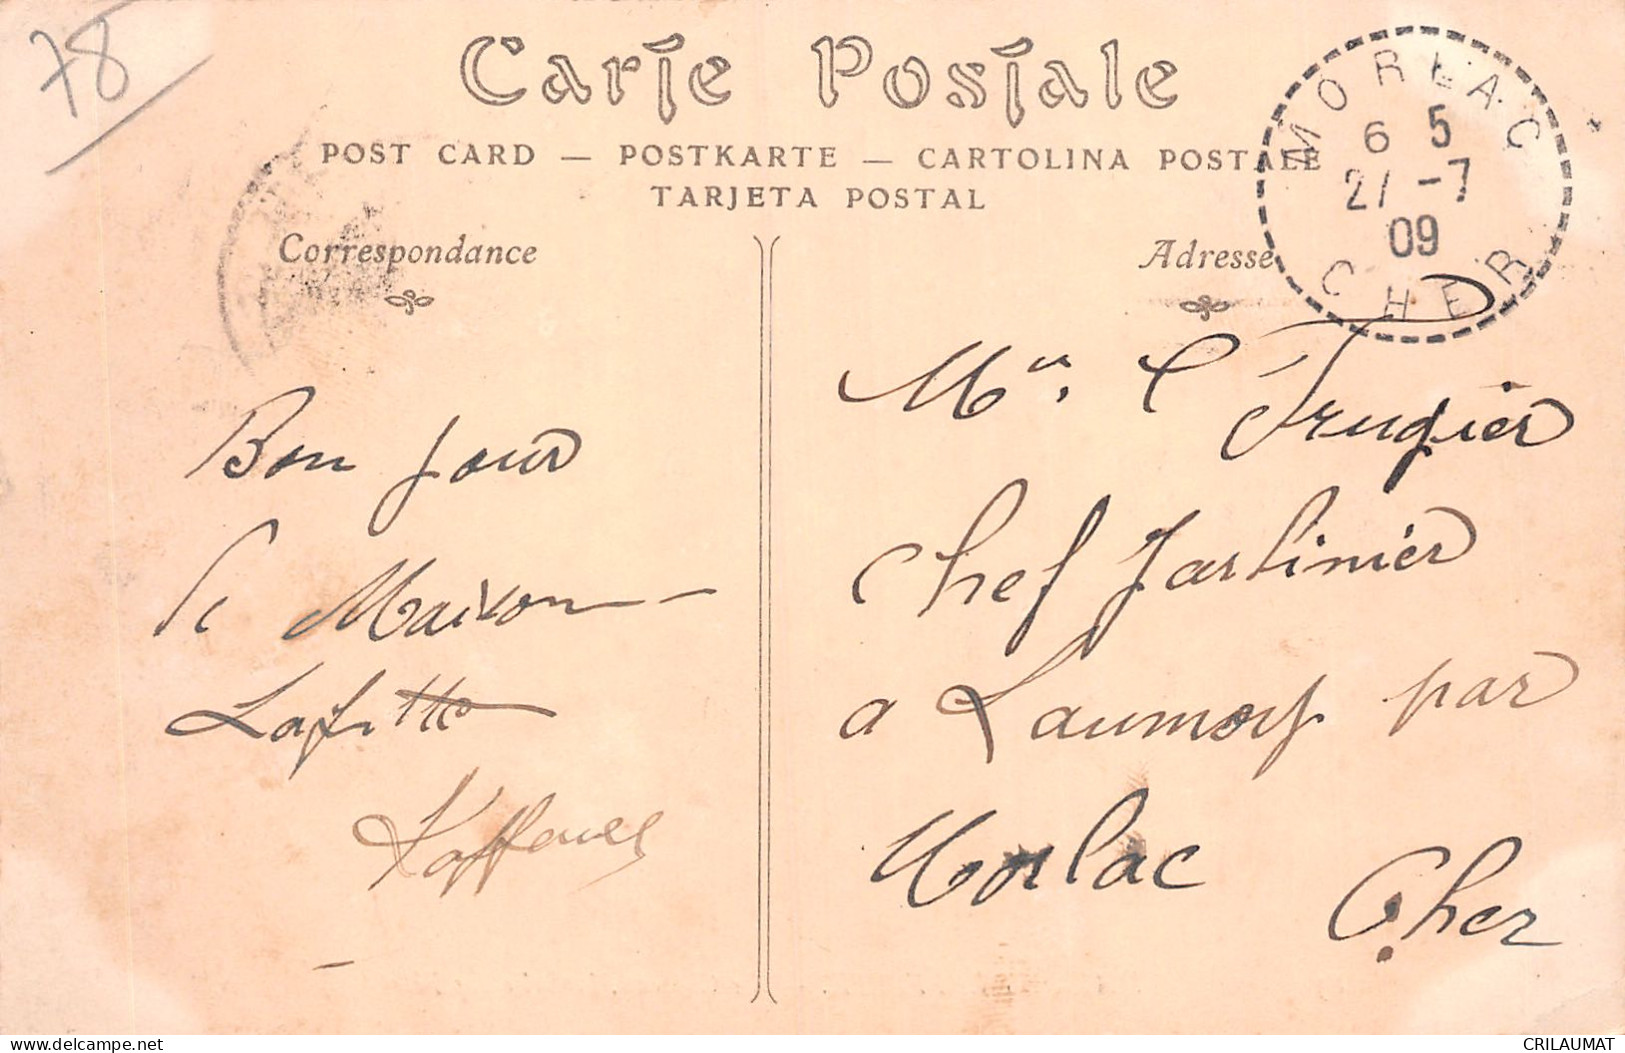 78
Carte Postale
POST CARD — POSTKARTE — CARTOLINA POSTALE
TARJETA POSTAL
MORLAC
6 5
27 -7
09
CHER
Correspondance
Adresse
Bon jour
de Maison
Lafitte
Mr. C Frugier
Chef Jardinier
a Laumoy par
Morlac
Cher
www.delcampe.net
CRILAUMAT